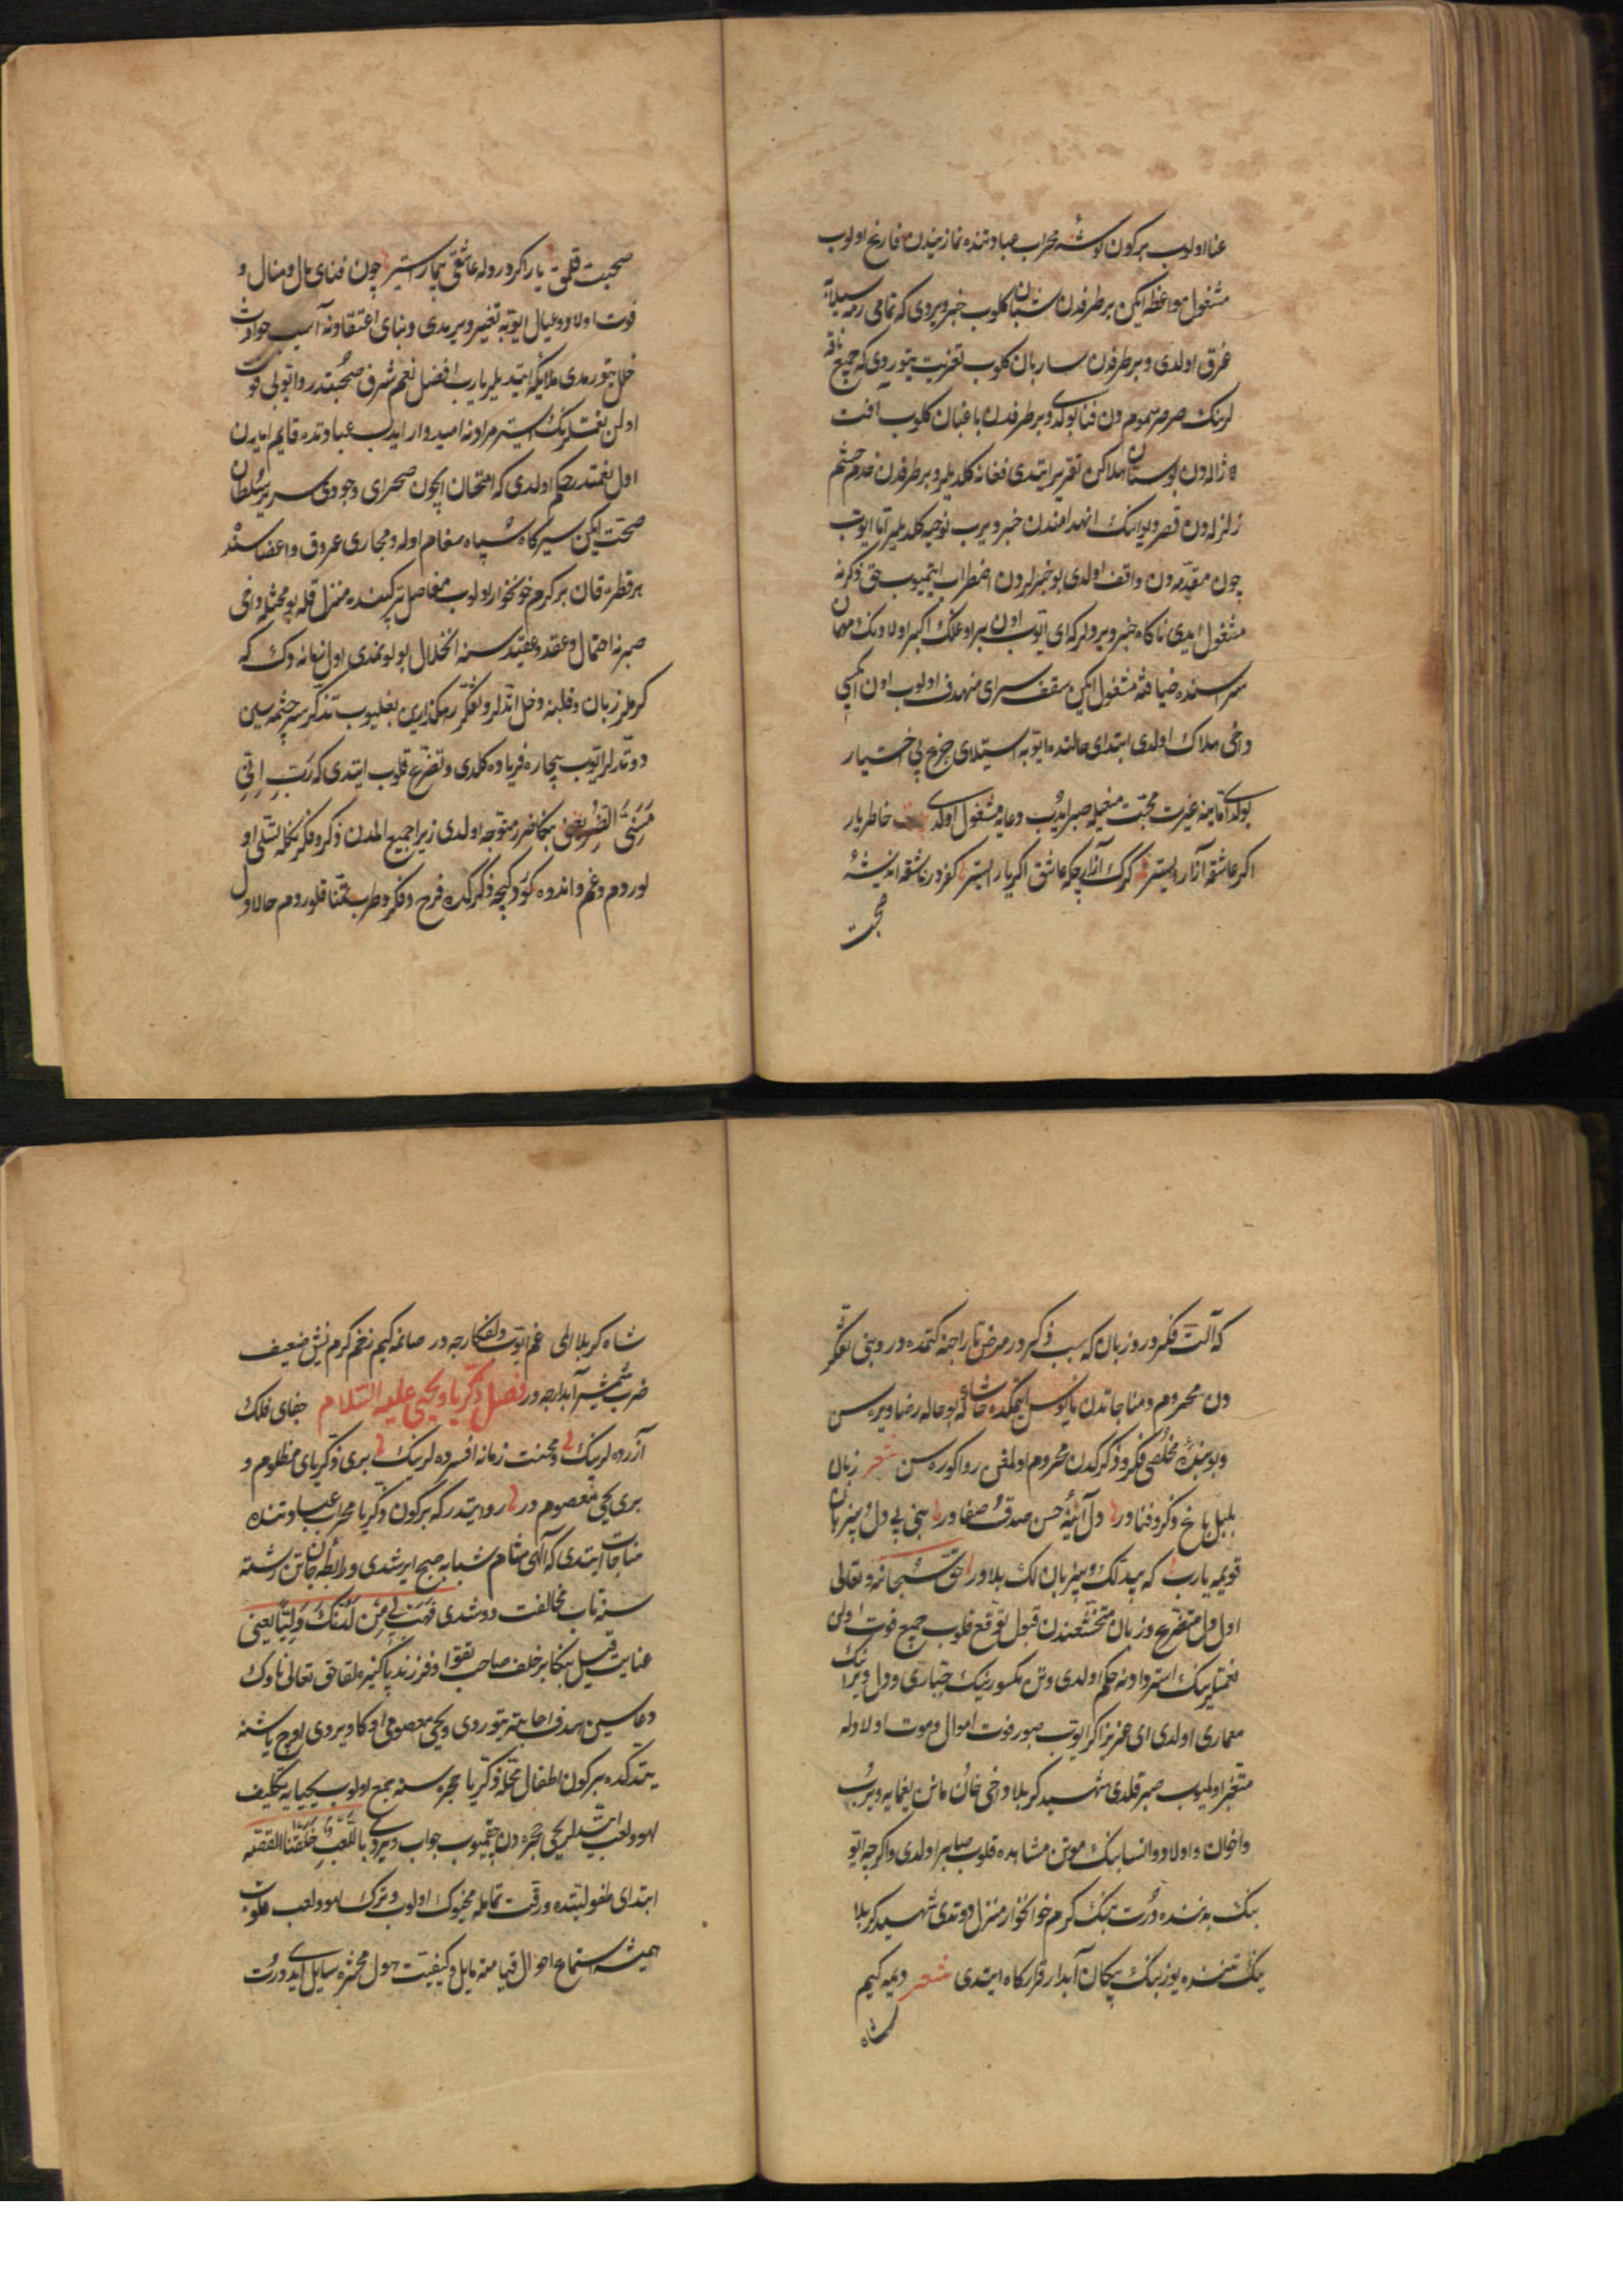 عنا اولوب بر كون كوشهٔ محراب عبادتنده نمازیندن فارغ اولوب
مشغول مواعظه ایكن بر طرفدن شبان كلوب خبر ویردی كه تمامی رمه سیلابه
غرق اولدی و بر طرفدن ساربان كلوب تعزیت یتوردی كه جمیع ناقه
لرینك صرصر سمومدن فنا بولدی و بر طرفدن باغبان كلوب آفت
ژاله دن بوستان هلاكن تقریر ایتدی فغانه كلدیلر و بر طرفدن خدم حشم
زلزله دن قصر و ایوانینك انهدامندن خبر ویرب نوحیه كلدیلر اما ایوب
چون مقدمه دن واقف اولدی بو خبرلردن اضطراب ایتمیوب حق ذكرنه
مشغول ایدی ناكاه خبر ویردیلر كه ای ایوب اون بر اوغلك اكبر اولادنك مهمان
سراسنده ضیافته مشغول ایكن سقف سرای منهدف اولوب اون ایكیسی
داخی هلاك اولدی ابتدای حالنده ایوبه استیلای جزع بی اختیار
بولدی اما ینه غیرت محبت منعیله صبر ایدیب دعایه مشغول اولدی خاطر یار
اكر عاشقه آزار ایستر كرك آزار چكه عاشق اكر یار ایستر كفردر عاشقه اندیشهٔ
صحبت
صحبت قلمق یار اكر درد ایله عاشقی بیمار ایستر چون فنای مال و منال و
فوت اولاد و عیال ایوبه تغییر ویرمدی و بنای اعتقادنه آسیب حوادث
خلل یتورمدی ملایكه ایتدیلر یا رب افضل نعم شرف صحتدر و ایوبی فوت
اولن نعمتلرینك استردادنه امیدوار ایدیب عبادتده قایم ایدن
اول نعمتدر حكم اولدی كه امتحان ایچون صحرای وجودی سریر سلطان
صحت ایكن سیركاه سپاه سقام اوله و مجاری عروق و اعضاسنده
هر قطره قان بر كرم خونخوار اولوب مفاصل تركیبنده منزل قله بو محنتله داخی
صبرنه احتمال و عقد عقیده سنه انحلال بولونمدی اول زمانه دك كه
كرملر زبان و قلبنه دخل ایتدیلر و تفكر رهكذارین بغلیوب تذكر سرچشمه سین
دوتدیلر ایوب بیچاره فریاده كلدی و تضرع قلوب ایتدی كه رَبِّ اِنّی
مَسَّنِیَ الضُّرُّ یعنی بنكا ضرر متوجه اولدی زیرا جمیع المدن ذكر و فكرنكله تسلی او
لوردم و غم و اندوه كوندوز كیجه ذكركده فرح و فكر و طرب تمنا قلوردم حالا دل
كه آلت فكردر و زبان كه سبب ذكردر مرض تاراجنه كتمده در و بنی تفكر
دن محروم و مناجاتدن مایوس ایتمكده حاشا كه بو حاله رضا ویره سن
و بو بندهٔ مخلصی فكر و ذكركدن محروم اولمقی روا كوره سن شعر زبان
بلبل باغ ذكر و فنادر دل آیینهٔ حسن صدق و صفادر بنی بی دل و بی زبان
قویمه یا رب كه بیدللك و بی زبانلك بلادر حق سبحانه و تعالی
اول دل متضرع و زبان متخشعندن قبول توقع قلوب جمیع فوت اولن
نعمتلرینك استردادنه حكم اولدی و تن مكسورنیك جباری و دل ویرانینك
معماری اولدی ای عزیز اكر ایوب صبور فوت اموال و موت اولادله
متغیر اولمیوب صبر قلدی شهید كربلا داخی خان و مانن یغمایه ویرب
و اخوان و اولاد و انسابنك موتن مشاهده قلوب صابر اولدی و اكرچه ایو
بنك بدننده درت بینك كرم خونخوار منزل دوتدی شهید كربلا
ینك تننده یوز بینك پیكان آبدار قراركاه ایتدی شعر دیمه كیم
شاه
شاه كربلا المی غم ایوب دلفكارجه در صانمه كیم زخم كرم نیش ضعیف
ضرب شمشیر آبدارجه در فصل ذكریا و یحیی علیه السلام جفای فلك
آزرده لرینك و محنت زمانه افسرده لرینك بری ذكریای مظلوم و
بری یحیی معصوم در روایتدر كه بر كون ذكریا محراب عبادتنده
مناجات ایتدی كه آلهی شام شبابه صبح ایرشدی و رابطهٔ جان تن رشته
سنه تاب مخالفت دوشدی فَهَبْ لِی مِنْ لَدُنْكَ وَلِیًّا یعنی
عنایت قیل بنكا بر خلف صاحب تقوا و فرزند پاكیزه لقا حق تعالی ناوك
دعاسین هدف اجابته یتوردی و یحیی معصومی اوكا ویردی اوچ یاشنه
یتدكده بر كون اطفال محله ذكریا حجره سنه جمع اولوب یحیایه تكلیف
لهو و لعب ایتدیلر یحیی حجره دن چقمیوب جواب ویردی مَا لِلَّعْبِ خُلِقْنَا القصه
ابتدای طفولیتنده رقت تمامله محبوك اولوب و ترك لهو و لعب قلوب
همیشه استماع احوال قیامته مایل و كیفیت هول محشره سایل ایدی درت